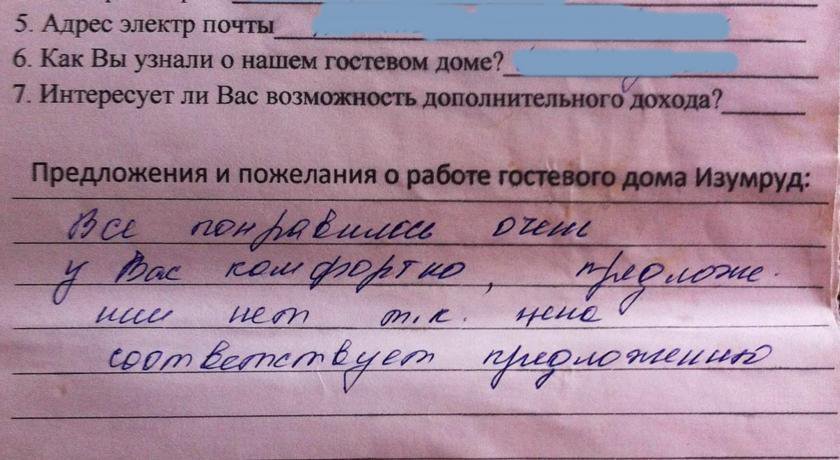 5. Адрес электр почты
6. Как Вы узнали о нашем гостевом доме?
7. Интересует ли Вас возможность дополнительного дохода?
Предложения и пожелания о работе гостевого дома Изумруд:
Все понравилось очень
у Вас комфортно, предложе-
ний нет т.к. цена
соответствует предложению